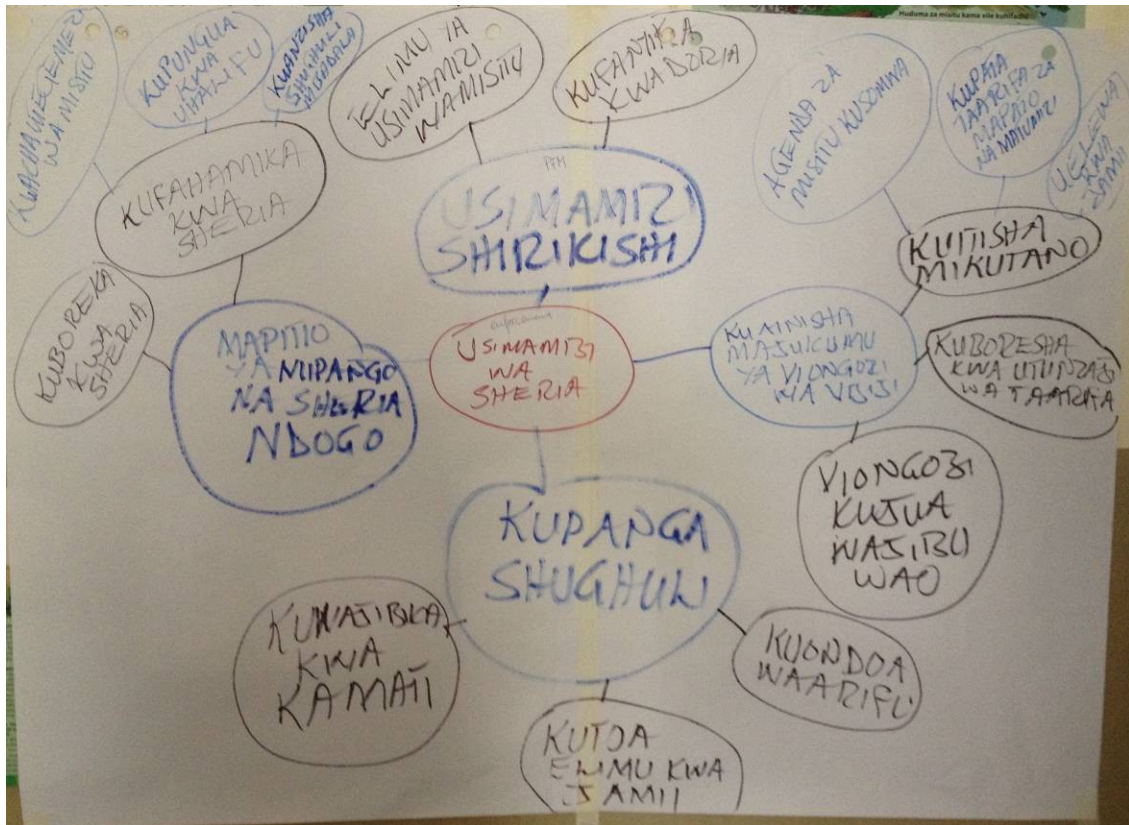 Huduma za misitu kama vile kuhifadhi
WA MISITU
KUPUNGUA
KWA
UHALIFU
KUANZISHA
SHUGHULI
MBADALA
ELIMU YA
USIMAMIZI
WAMISITU
KUFANYIKA
KWA DORIA
AGENDA ZA
MISITU KUSOMWA
KUPATA
TAARIFA ZA
MAPATO
NA MATUMIZI
UELEWA
KWA
JAMII
KUFAHAMIKA
KWA
SHERIA
PFM
USIMAMIZI
SHIRIKISHI
KUITISHA
MIKUTANO
KUBOREKA
KWA
SHERIA
MAPITIO
YA MIPANGO
NA SHERIA
NDOGO
enforcement
USIMAMIZI
WA
SHERIA
KUAINISHA
MAJUKUMU
YA VIONGOZI
WA VIJIJI
KUBORESHA
KWA UTUNZAJI
WA TAARIFA
VIONGOZI
KUJUA
WAJIBU
WAO
KUPANGA
SHUGHULI
KUWAJIBIKA
KWA
KAMATI
KUONDOA
WAARIFU
KUTOA
ELIMU KWA
JAMII